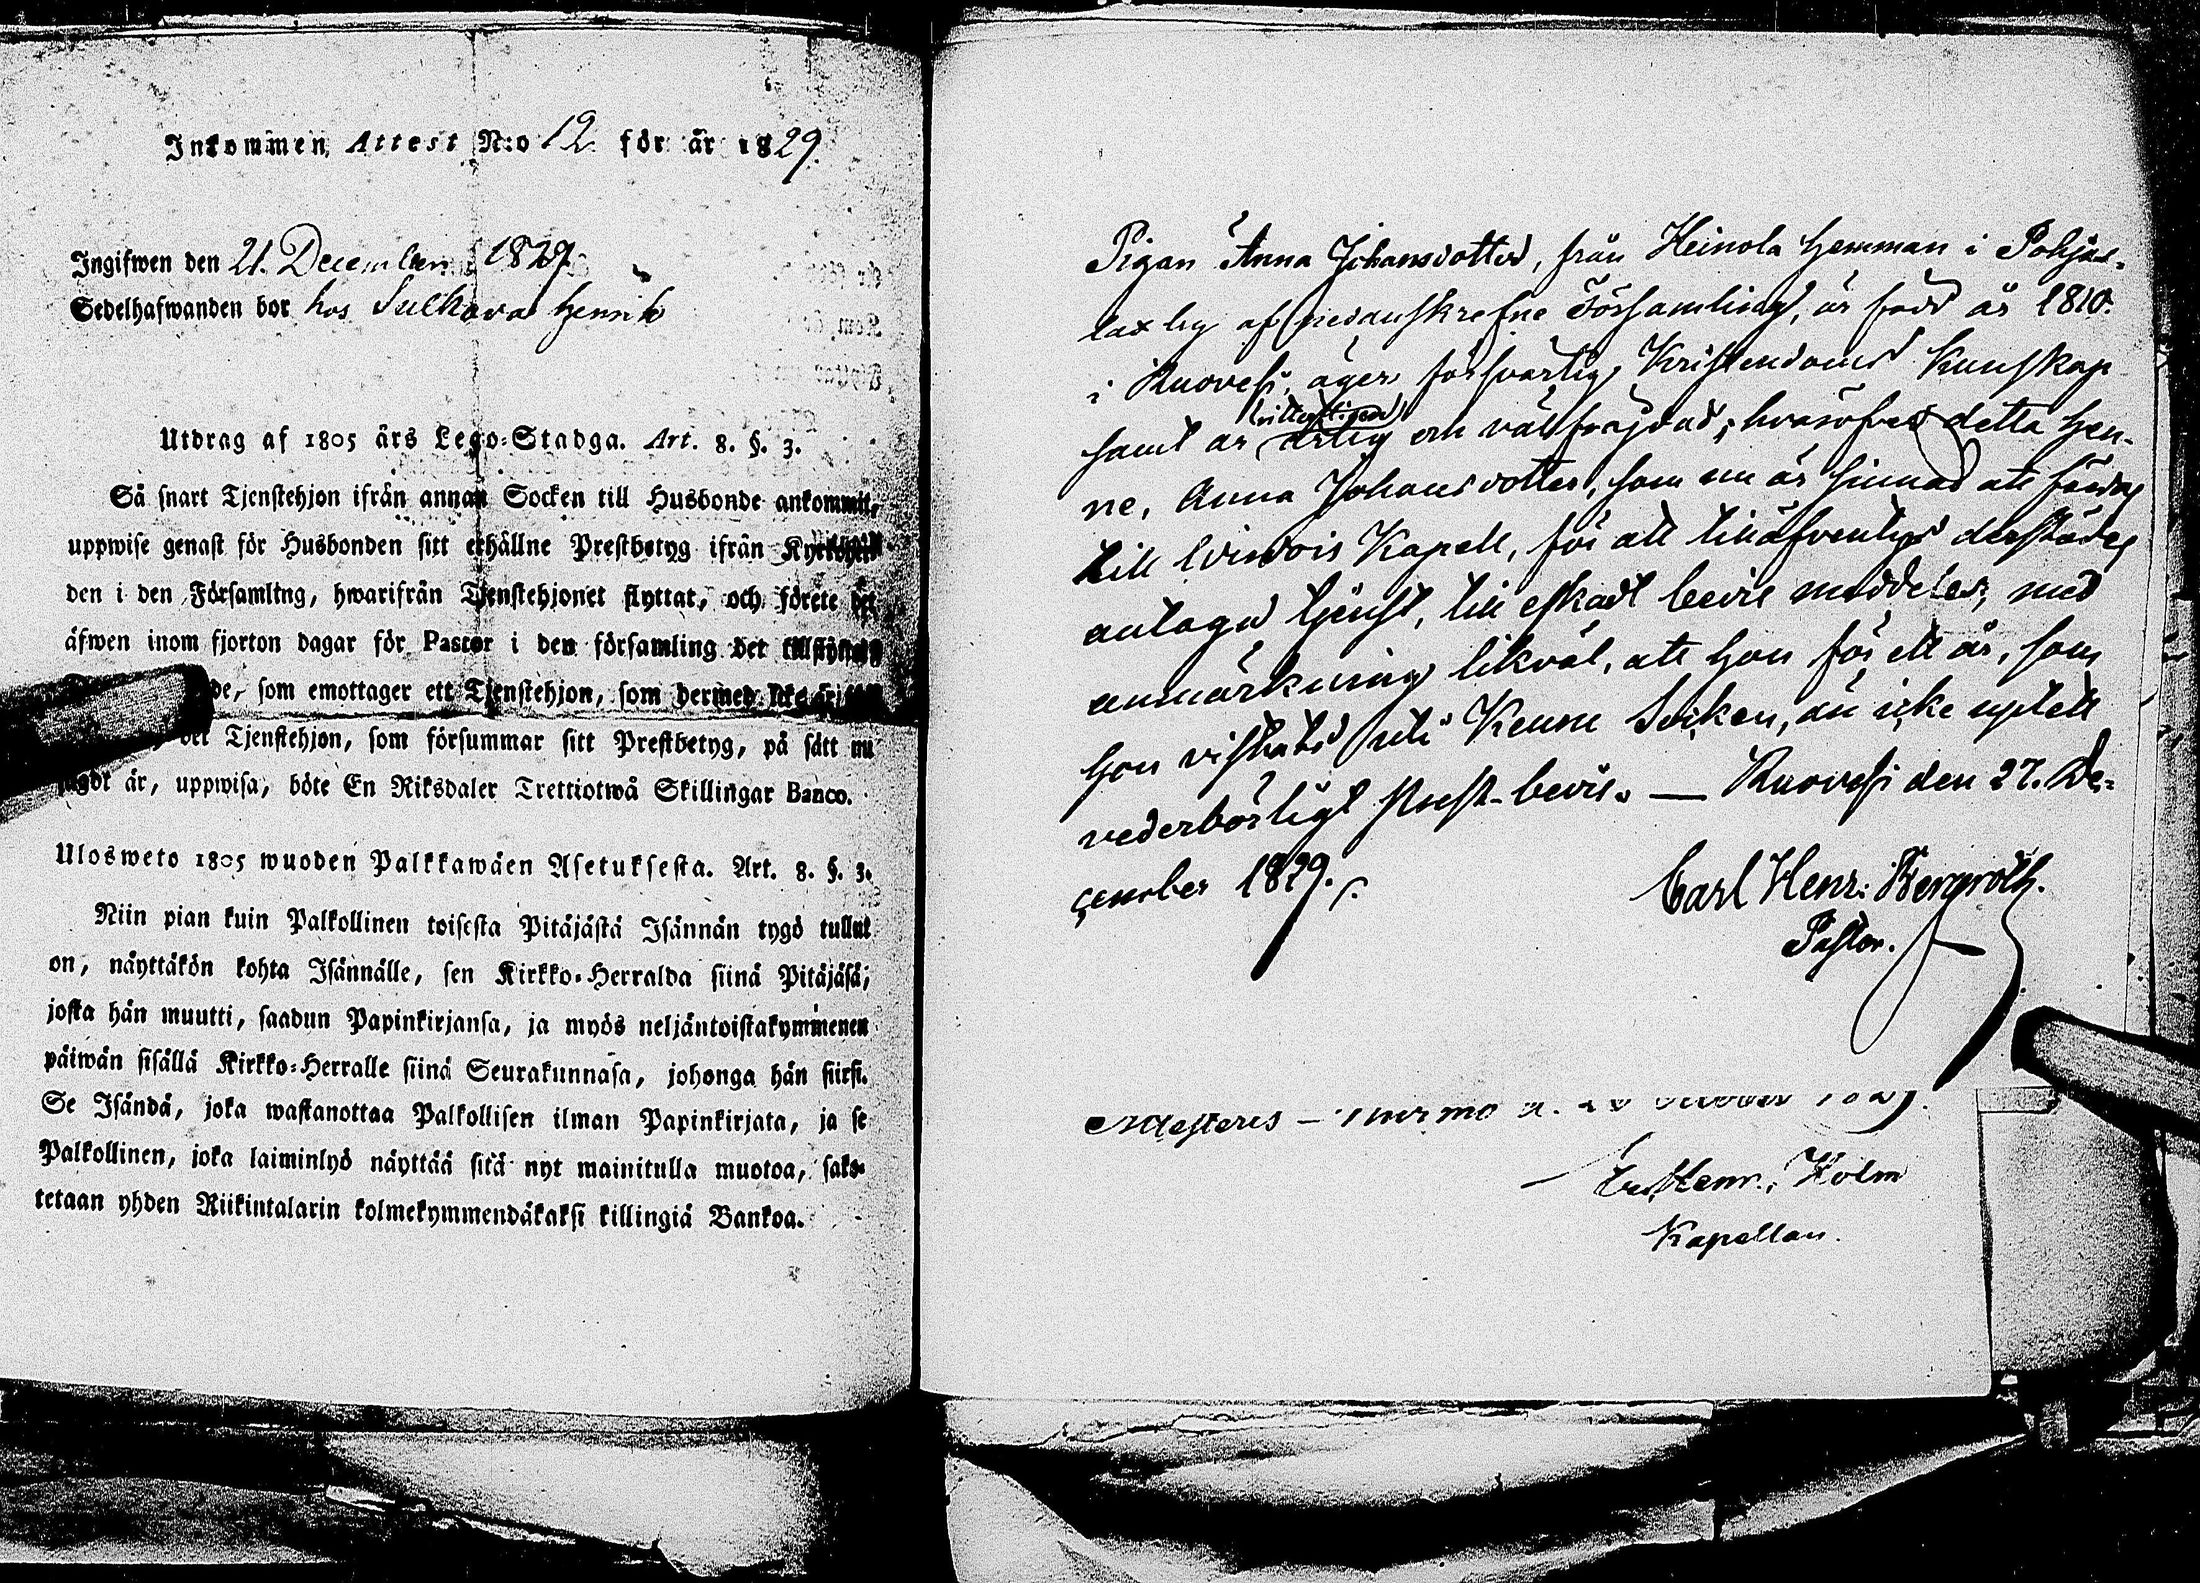 Inkommen Attest N:o 12. för år 1829.
Ingifwen den 21. December 1829
Sedelhafwanden bor hos Sulkava Henrik
Utdrag af 1805 års Lego-Stadga. Art. 8. §. 3.
Så snart Tjenstehjon ifrån annan Socken till Husbonde ankommit,
uppwise genast för Husbonden sitt erhållne Prestbetyg ifrån
den i den Församltng, hwarifrån Tjenstehjonet flyttat, och förete det
äfwen inom fjorton dagar för Pastor i den församling det
de, som emottager ett Tjenstehjon, som dermed icke är
det Tjenstehjon, som försummar sitt Prestbetyg, på sätt nu
sagdt är, uppwisa, böte En Riksdaler Trettiotwå Skillingar Banco.
Ulosweto 1805 wuoden Palkkawäen Asetuksesta. Art. 8. §. 3.
Niin pian kuin Palkollinen toisesta Pitäjästä Isännän tygö tullut
on, näyttäkön kohta Isännälle, sen Kirkko-Herralda siinä Pitäjäsä,
josta hän muutti, saadun Papinkirjansa, ja myös neljäntoistakymmenen
päiwän sisällä Kirkko-Herralle siinä Seurakunnasa, johonga hän siirsi.
Se Isändä, joka wastanottaa Palkollisen ilman Papinkirjata, ja se
Palkollinen, joka laiminlyö näyttää sitä nyt mainitulla muotoa, sako-
tetaan yhden Riikintalarin kolmekymmendäkaksi killingiä Bankoa.
Pigan Anna Johansdotter, från Heinola hemman i Pohjas-
lax by af nedanskrefne Församling, är född år 1810.
i Ruovesi, äger försvarlig Kristendoms kunskap
samt är ärlig och välfrejdad; hvaröfver detta hen-
ne, Anna Johansdotter, som nu är sinnad att färdas
till Virdois Kapell, för att tilläfventyrs derstädes
antaga tjenst, till äskadt bevis meddeles, med
anmärkning likväl, att hon för ett år, som
hon vistats uti Keuru Socken, än icke uptett
vederbörligt Prest-bevis. — Ruovesi den 27. De-
cember 1829.
Carl Henr: Bergroth.
Pastor.
Henr. Holm
Kapellan.